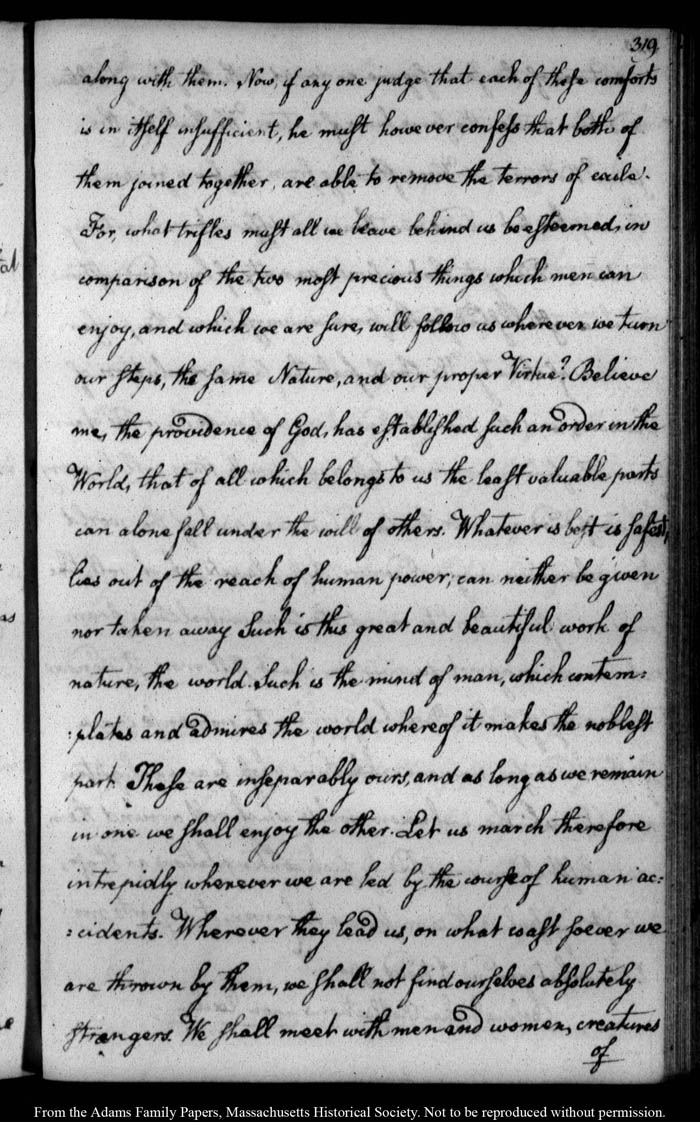 319
along with them. Now, if any one judge that each of these comforts
is in itself insufficient, he must however confess that both of
them joined together, are able to remove the terrors of exile.
For, what trifles must all we leave behind us be esteemed, in
comparison of the two most precious things which men can
enjoy, and which we are sure, will follow us wherever we turn
our steps, the same Nature, and our proper Virtue? Believe
me, the providence of God, has established such an order in the
World, that of all which belongs to us the least valuable parts
can alone fall under the will of others. Whatever is best is safest,
lies out of the reach of human power; can neither be given
nor taken away Such is this great and beautiful work of
nature, the world. Such is the mind of man, which contem:
:plates and admires the world whereof it makes the noblest
part. These are inseparably ours, and as long as we remain
in one we shall enjoy the other. Let us march therefore
intrepidly wherever we are led by the course of human ac:
:cidents. Wherever they lead us, on what coast soever we
are thrown by them, we shall not find ourselves absolutely
strangers. We shall meet with men and women, creatures
of
From the Adams Family Papers, Massachusetts Historical Society. Not to be reproduced without permission.